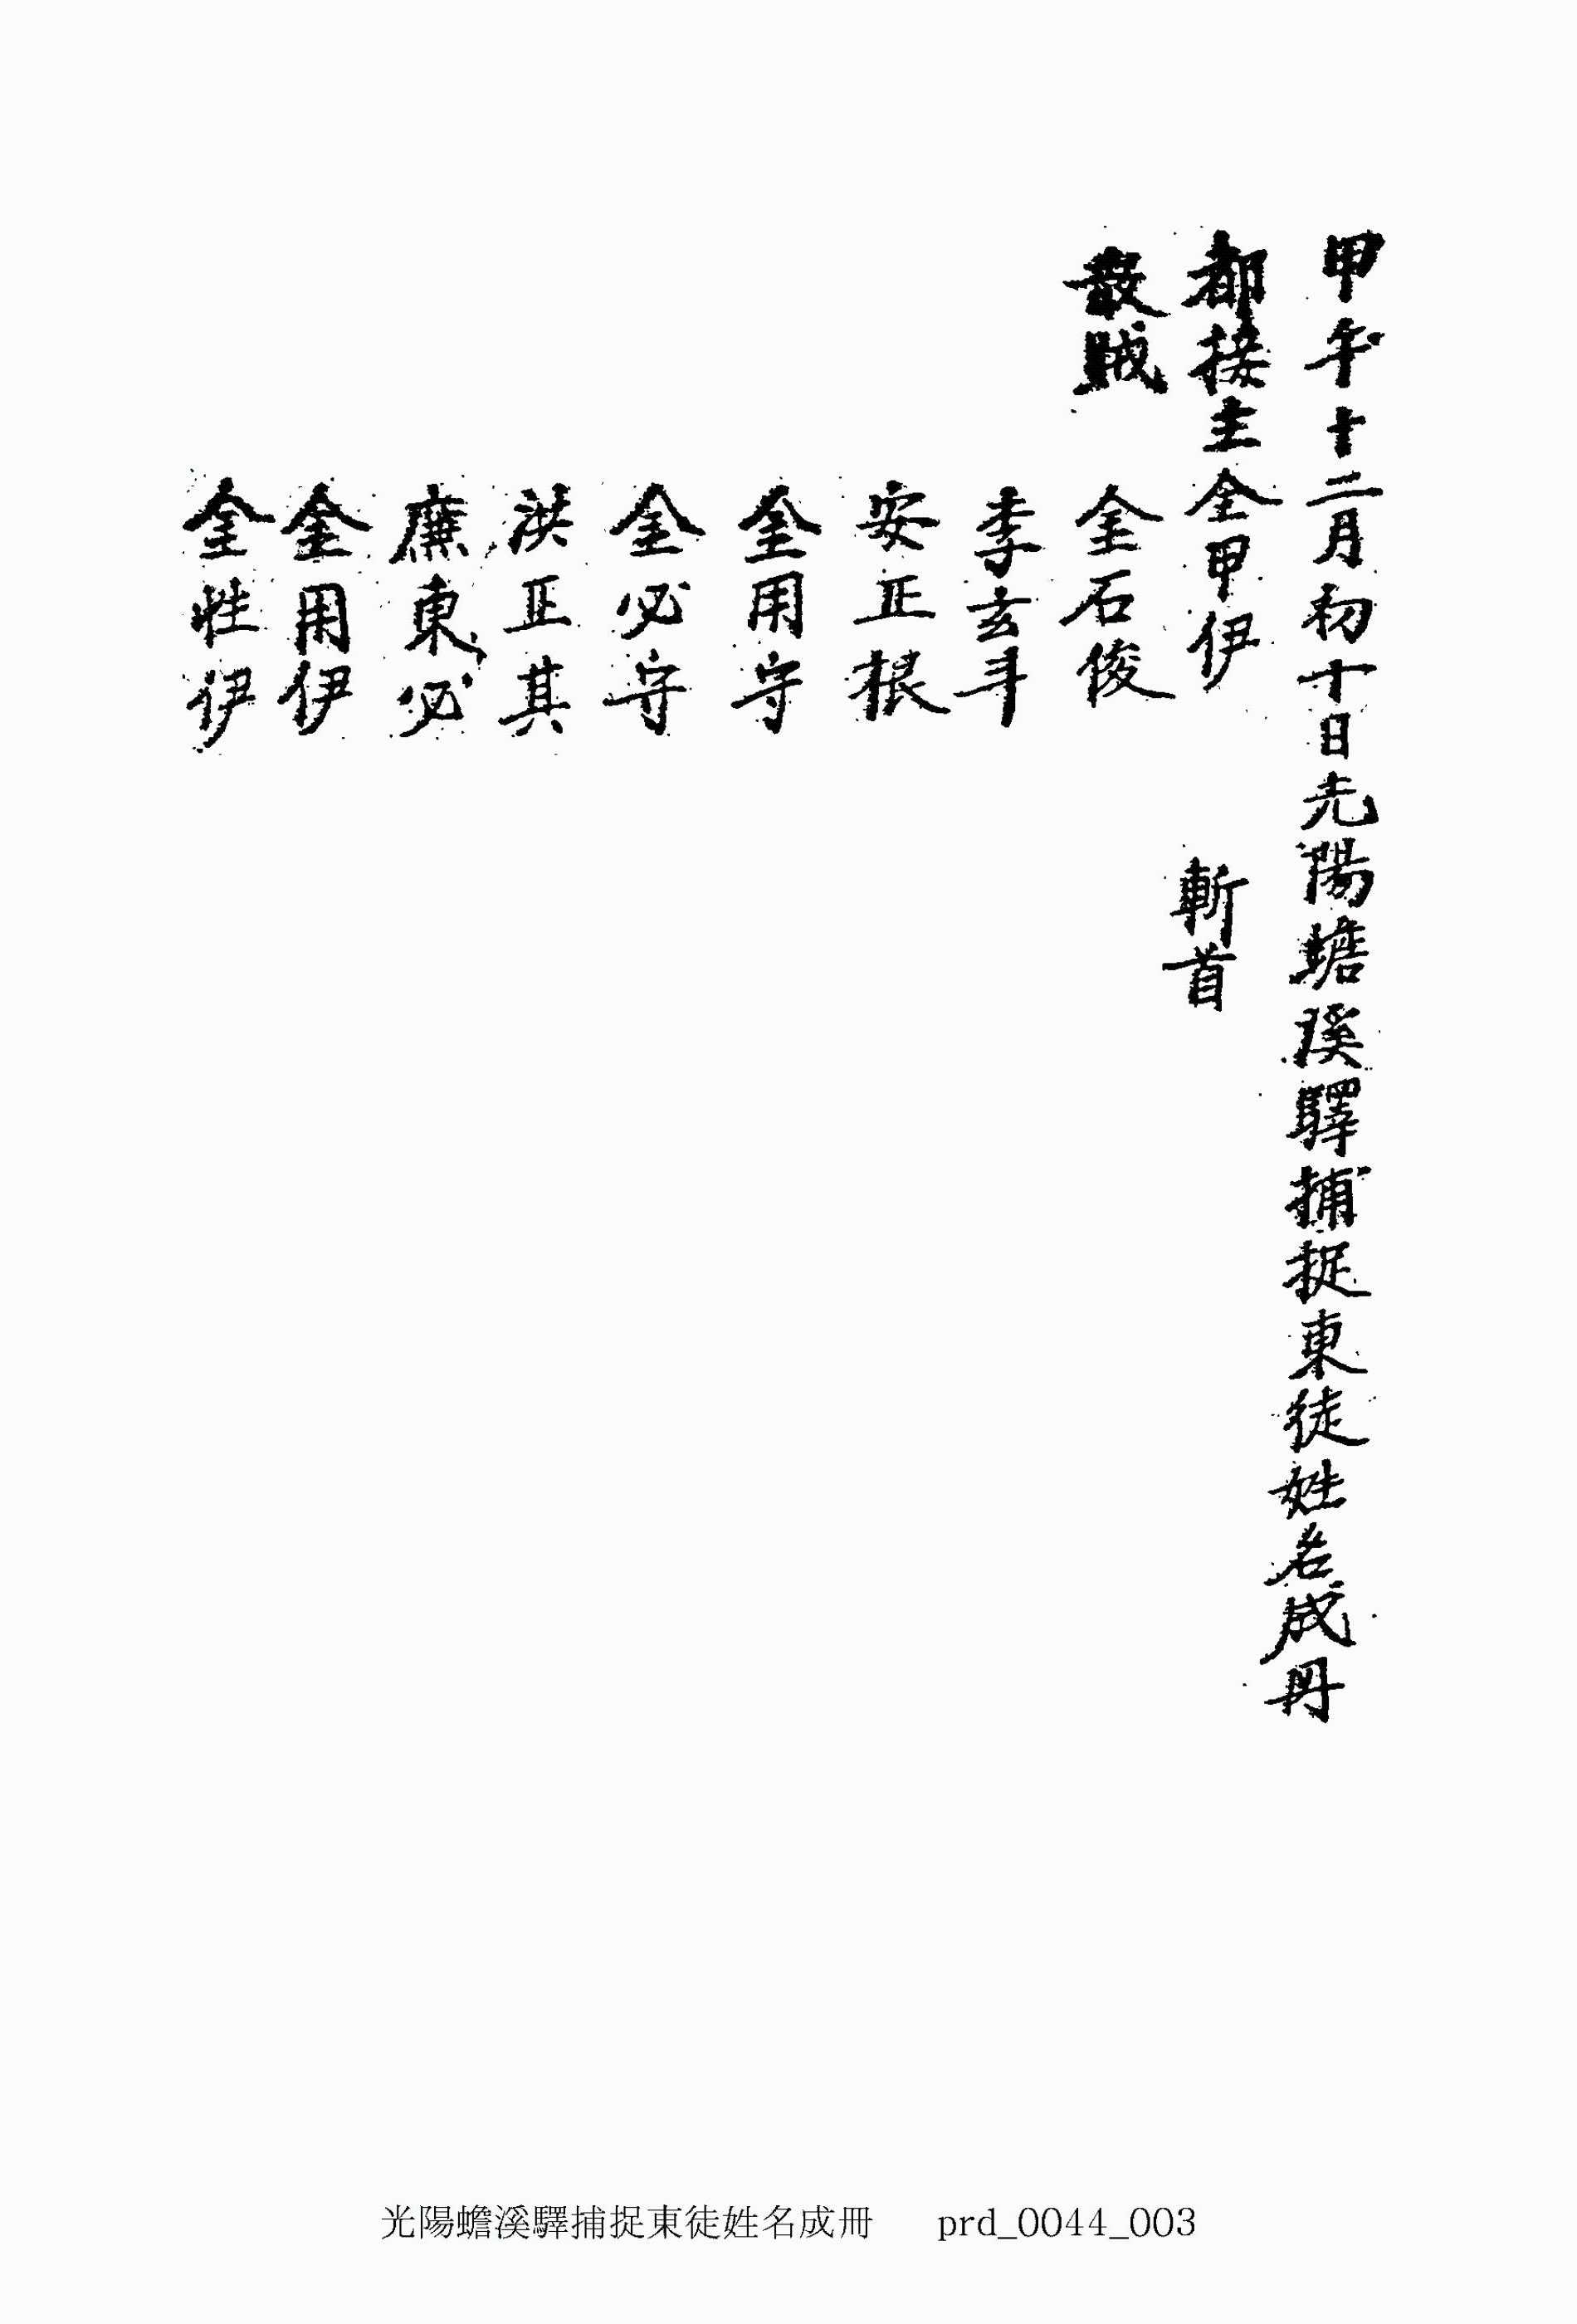 甲午十二月初十日光陽蟾溪驛捕捉東徒姓名成冊
都接主金甲伊 斬首
散賊 金石俊
李玄斗
安正根
金用守
金必守
洪正其
廉東必
金用伊
金性伊
光陽蟾溪驛捕捉東徒姓名成冊 prd_0044_003